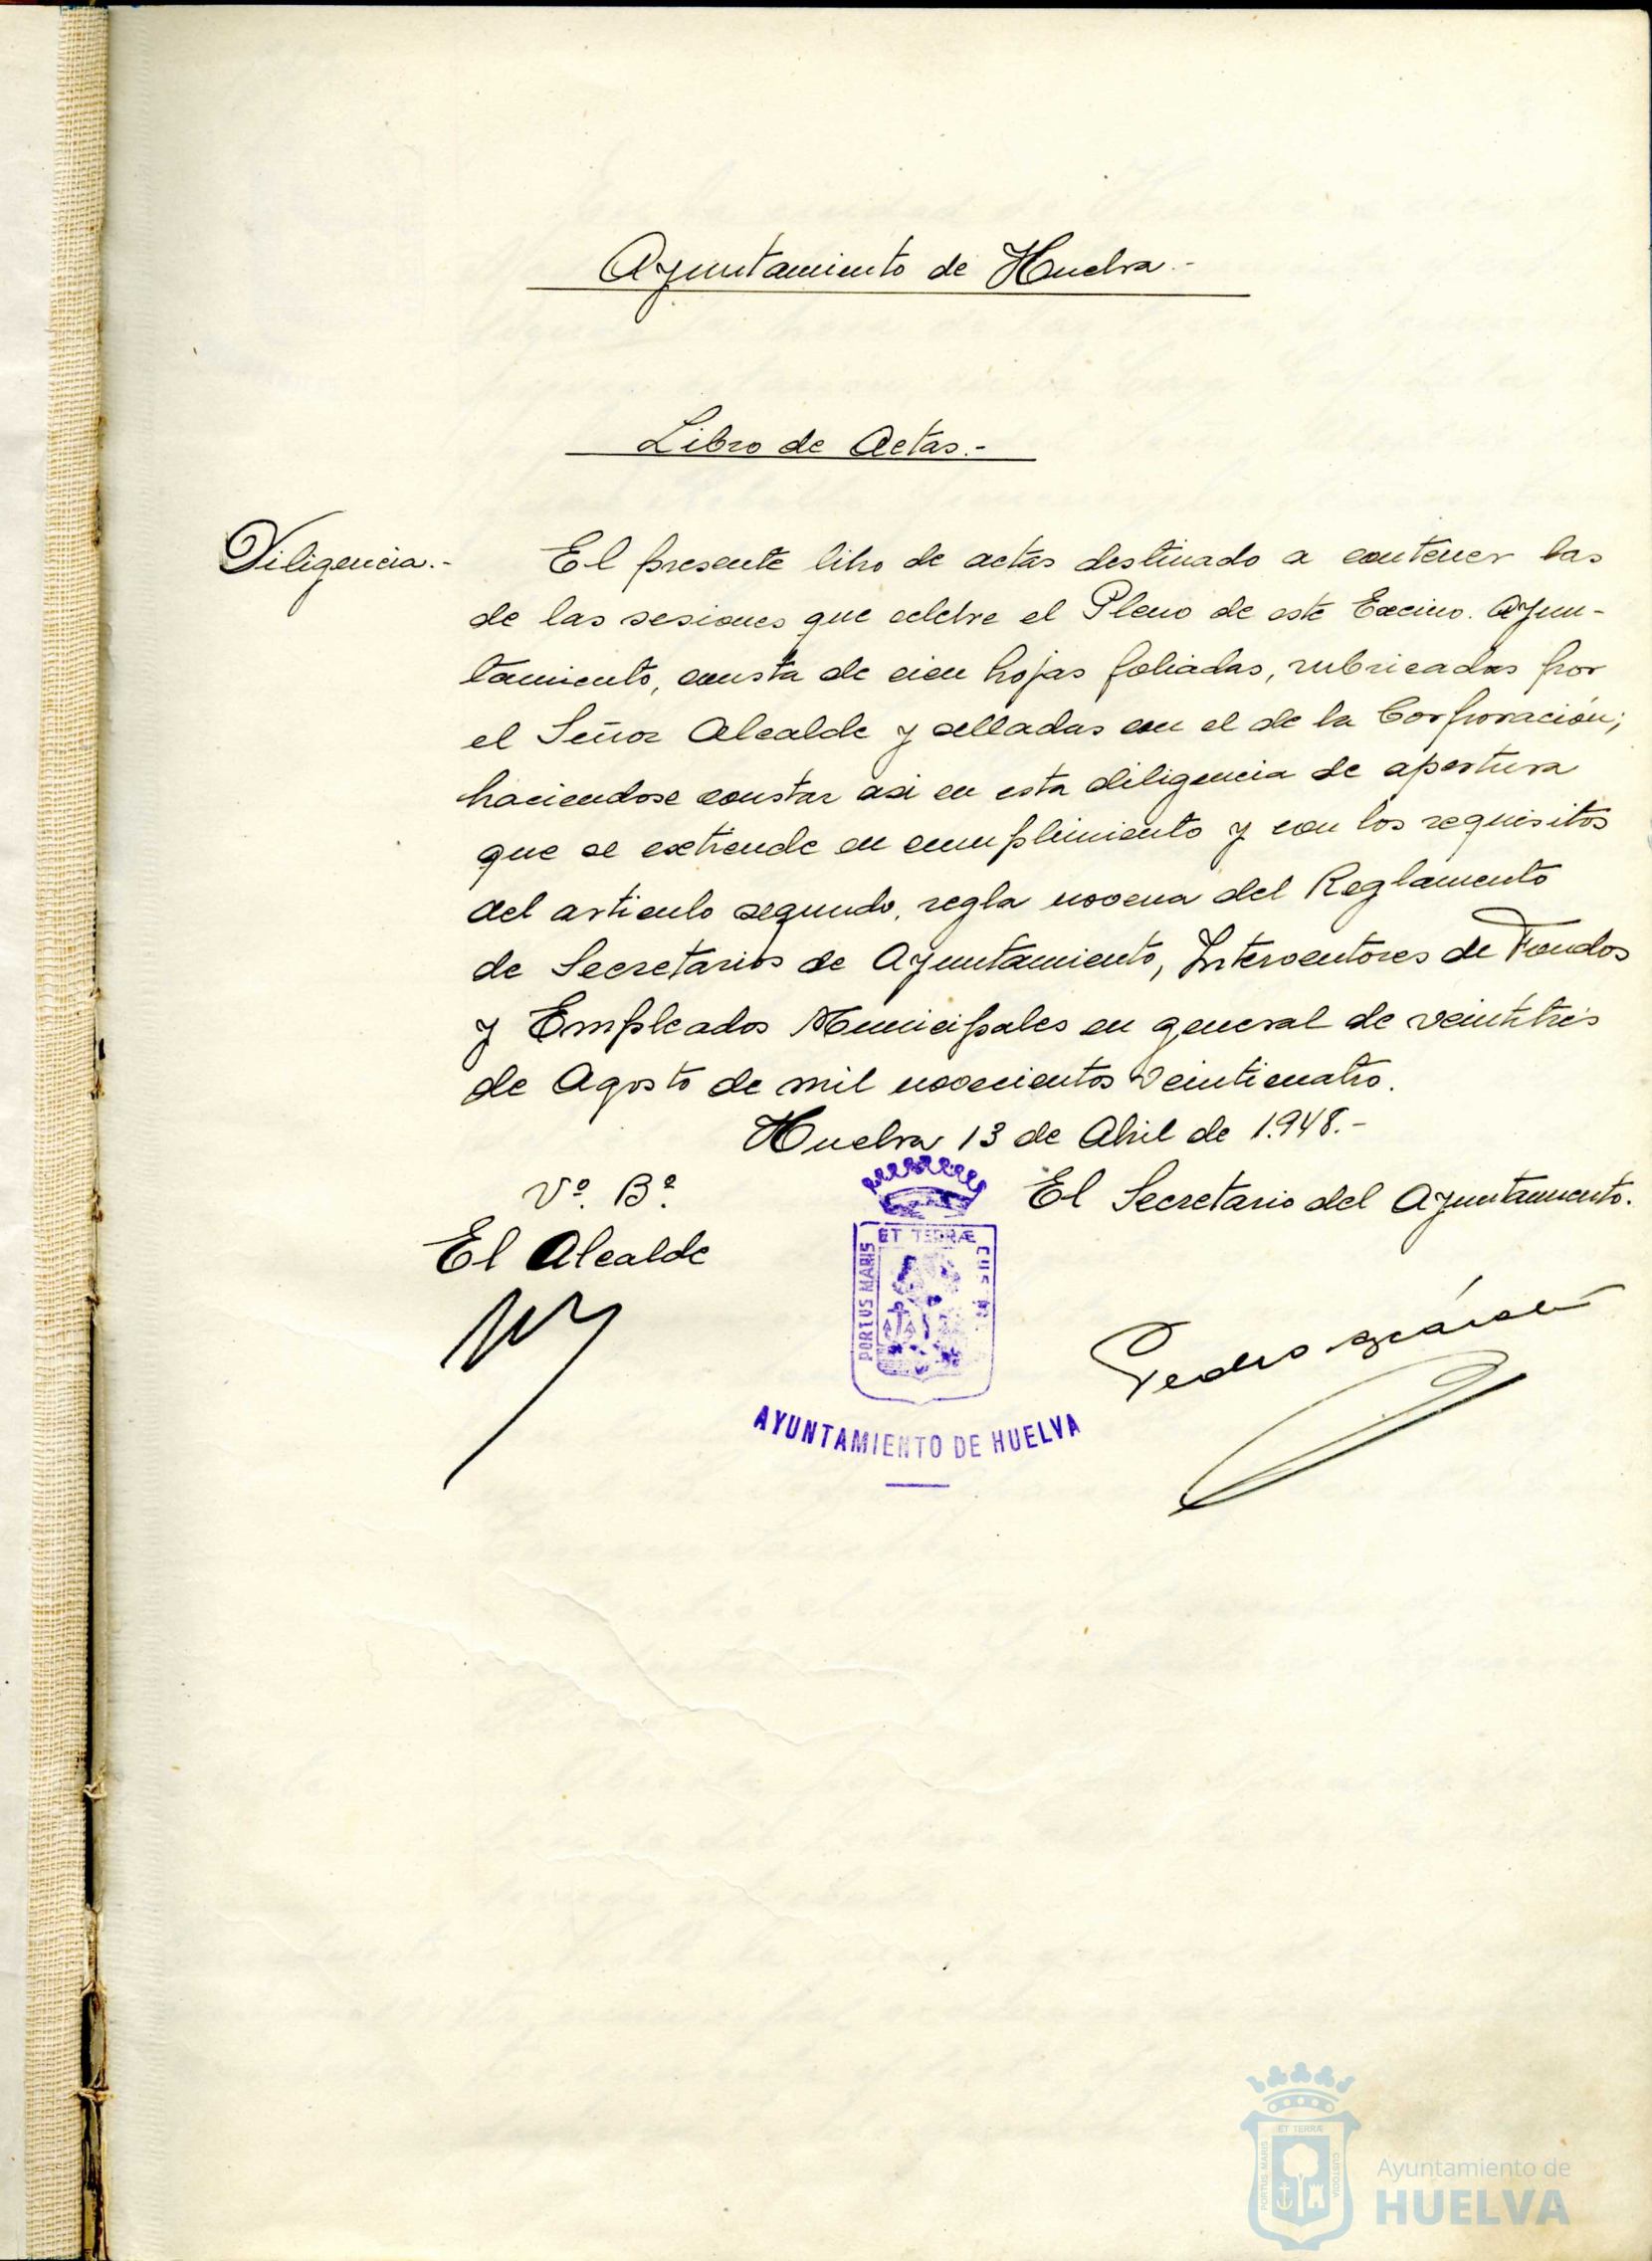 Ayuntamiento de Huelva.-
Libro de Actas.-
Diligencia.- El presente libro de actas destinado a contener las
de las sesiones que celebre el Pleno de este Excmo. Ayun-
tamiento, consta de cien hojas foliadas, rubricadas por
el Señor Alcalde y selladas con el de la Corporación;
haciendose constar asi en esta diligencia de apertura
que se extiende en cumplimiento y con los requisitos
del articulo segundo, regla novena del Reglamento
de Secretarios de Ayuntamiento, Interventores de Fondos
y Empleados Municipales en general de veintitrés
de Agosto de mil novecientos veinticuatro.
Huelva 13 de Abril de 1.948.-
Vº. Bº.
El Alcalde
El Secretario del Ayuntamiento.
PORTUS MARIS
ET TERRÆ
Pedro
AYUNTAMIENTO DE HUELVA
PORTUS MARIS
ET TERRÆ
CUSTODIA
Ayuntamiento de
HUELVA